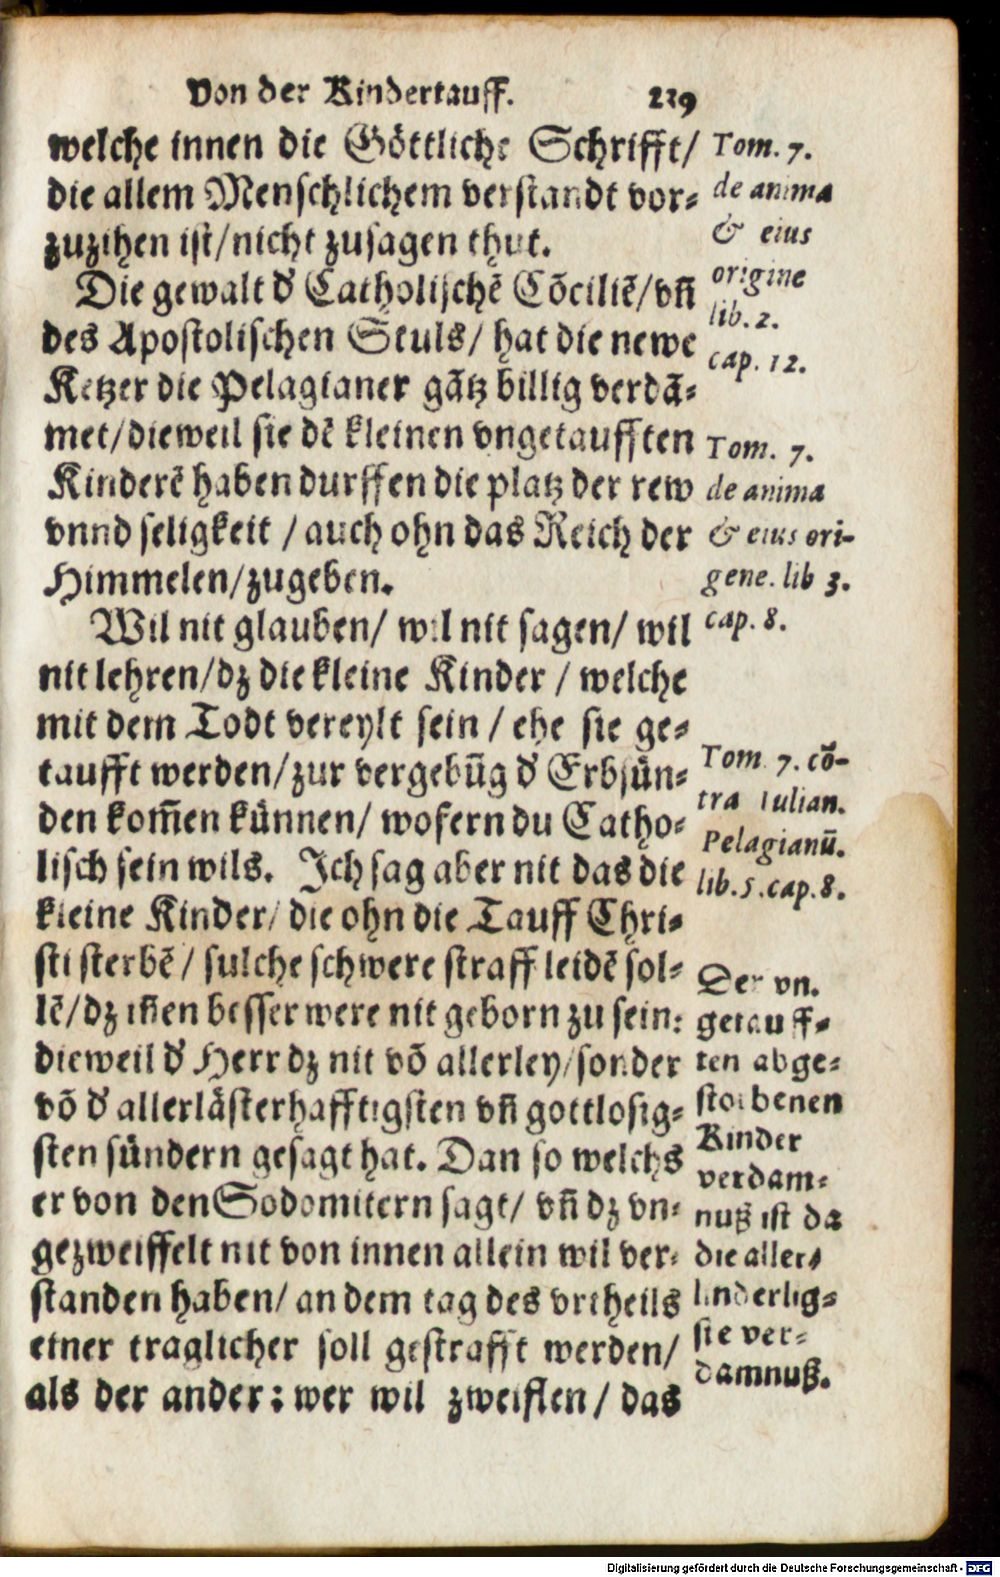 Von der Kindertauff. 219
welche innen die Göttliche Schrifft/
die allem Menschlichem verstandt vor⸗
zuzihen ist/nicht zusagen thut.
Die gewalt d' Catholischẽ Cõciliẽ/vñ
des Apostolischen Stuls/ hat die newe
Ketzer die Pelagianer gãtz billig verdã⸗
met/dieweil sie dẽ kleinen vngetaufften
Kinderẽ haben durffen die platz der rew
vnnd seligkeit / auch ohn das Reich der
Himmelen/zugeben.
Wil nit glauben/ wil nit sagen/ wil
nit lehren/dz die kleine Kinder / welche
mit dem Todt vereylt sein / ehe sie ge⸗
taufft werden/zur vergebũg d' Erbsün⸗
den kom̃en künnen/ wofern du Catho⸗
lisch sein wils. Ich sag aber nit das die
kleine Kinder/ die ohn die Tauff Chri⸗
sti sterbẽ / sulche schwere straff leidẽ sol⸗
lẽ/dz iñen besser were nit geborn zu sein:
dieweil d' Herr dz nit võ allerley/sonder
võ d' allerlästerhafftigsten vñ gottlosig⸗
sten sündern gesagt hat. Dan so welchs
er von den Sodomitern sagt/ vñ dz vn⸗
gezweiffelt nit von innen allein wil ver⸗
standen haben/ an dem tag des vrtheils
einer traglicher soll gestrafft werden/
als der ander: wer wil zweiflen / das
Tom. 7.
de anima
& eius
origine
lib. 2.
cap. 12.
Tom. 7.
de anima
& eius ori-
gene. lib 3.
cap. 8.
Tom. 7. cõ-
tra Iulian.
Pelagianũ.
lib. 5. cap. 8.
Der vn.
getauff⸗
ten abge⸗
storbenen
Kinder
verdam⸗
nuß ist da
die aller⸗
linderlig⸗
ste ver⸗
damnuß.
Digitalisierung gefördert durch die Deutsche Forschungsgemeinschaft - DFG